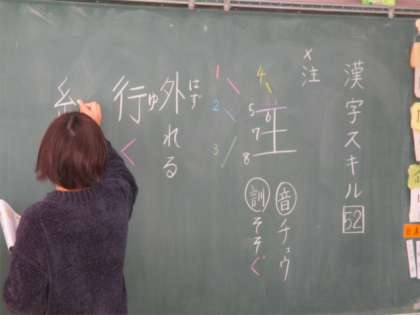 漢字スキル52
×注
注
1
2
3
4
5
6
7
8
音チュウ
訓そそぐ
外れる
はず
行く
ゆ